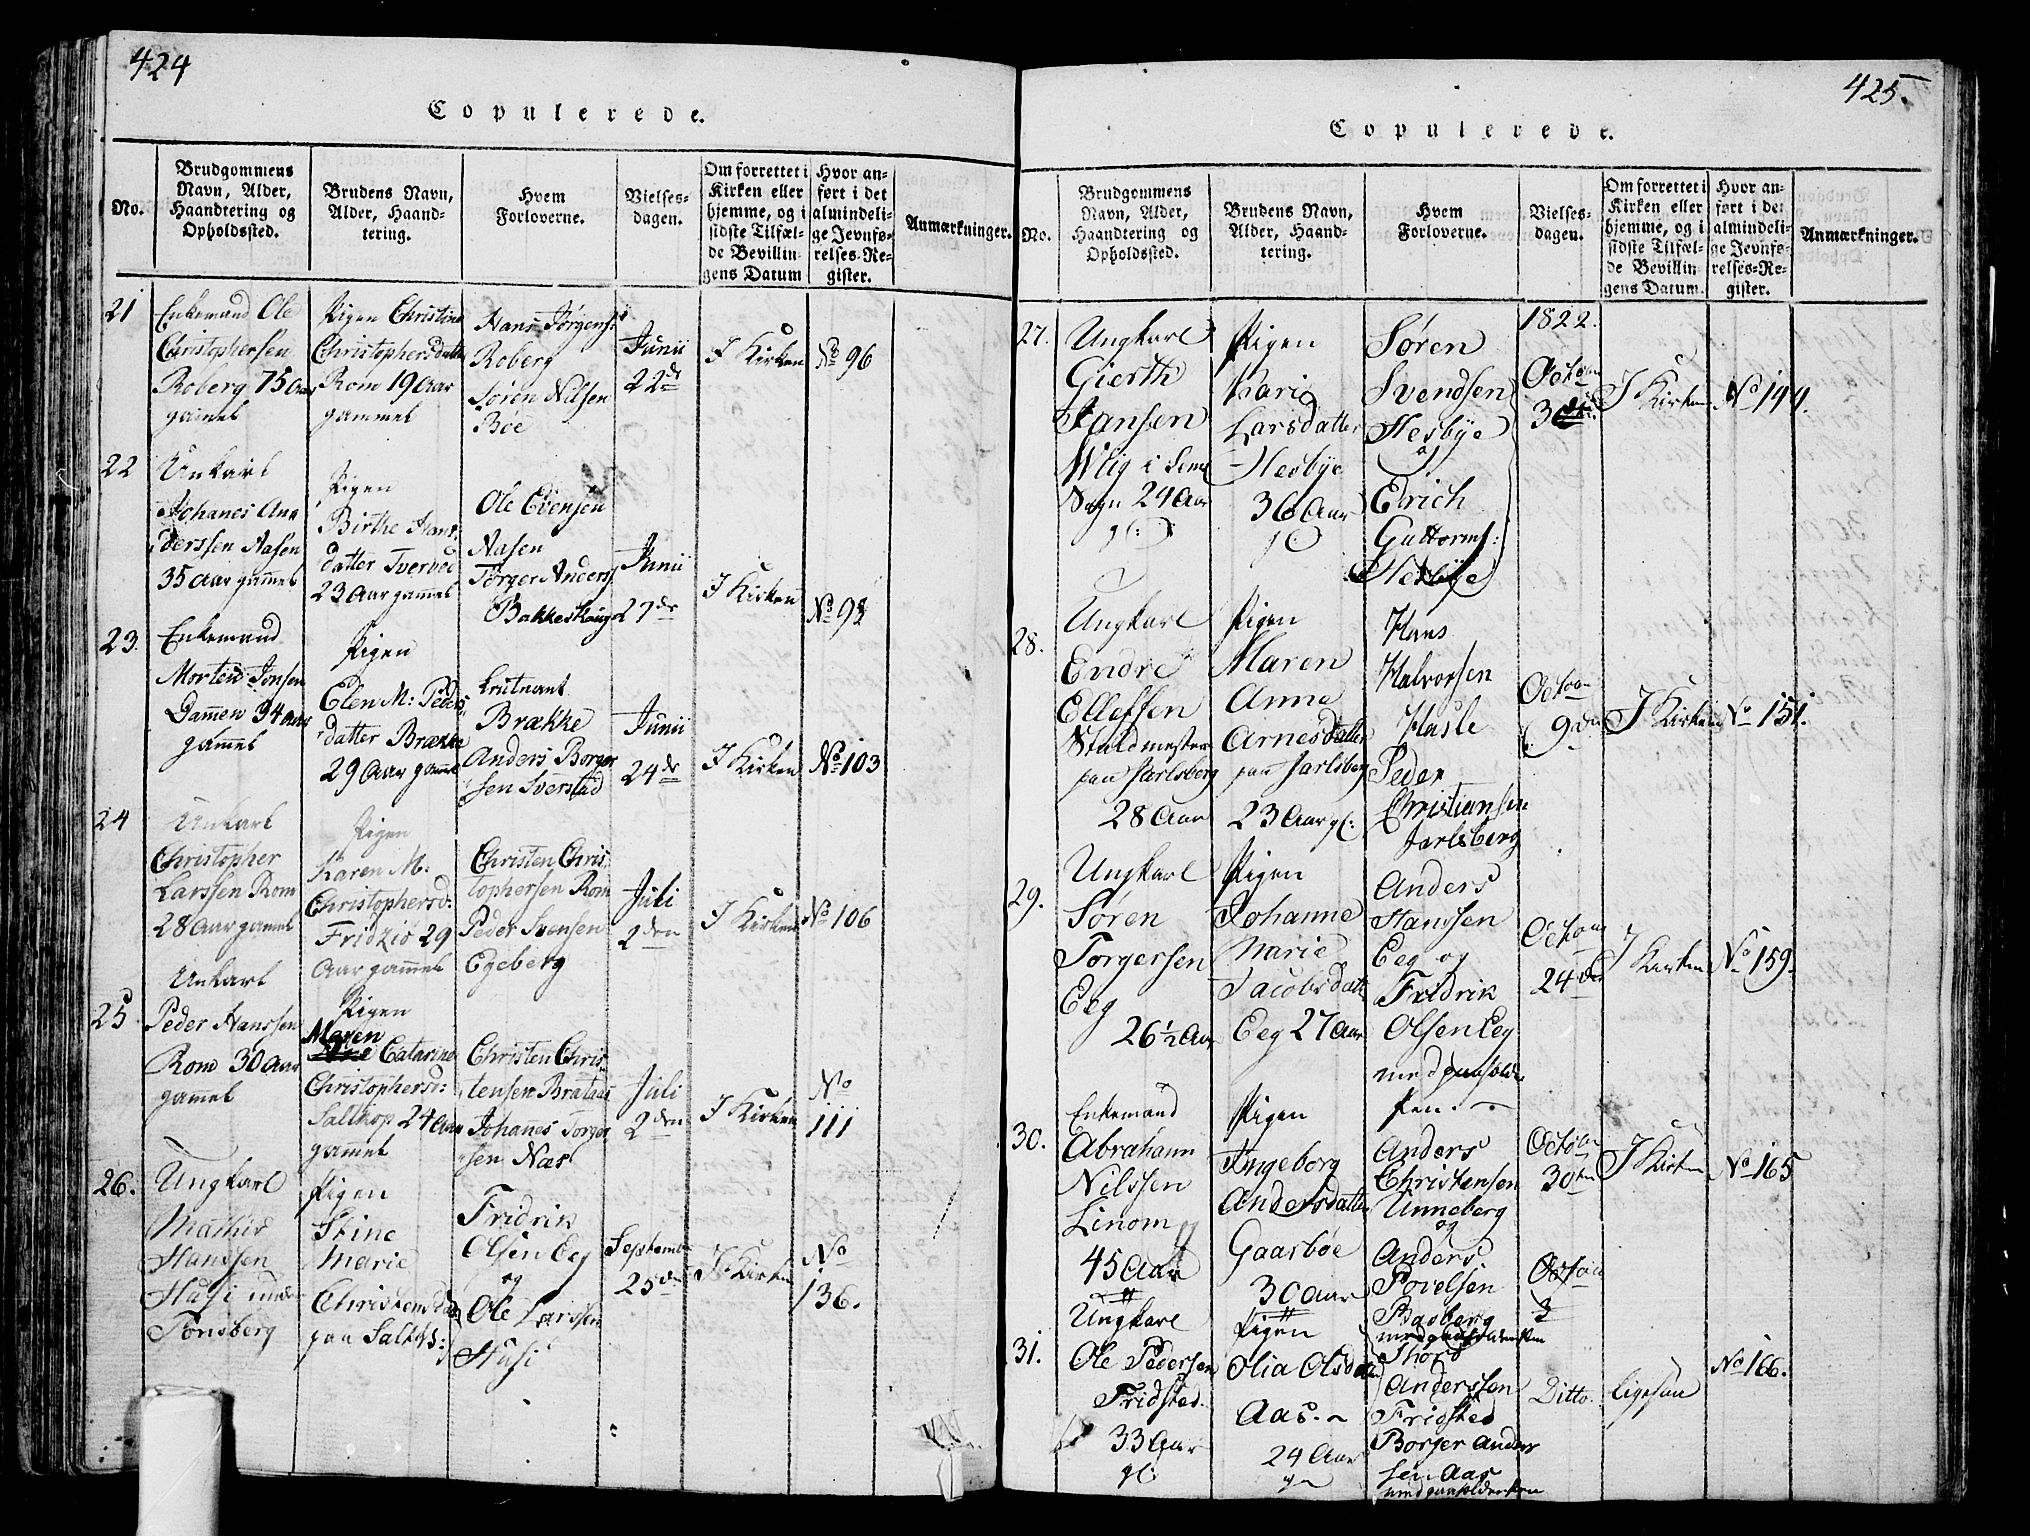 424
Copulerede.
No.
Brudgommens
Navn, Alder,
Haandtering og
Opholdssted.
Brudens Navn,
Alder, Haand-
tering.
Hvem
Forloverne.
Vielses-
dagen.
Om forrettet i
Kirken eller
hjemme, og i
sidste Tilfæl-
de Bevillin-
gens Datum
Hvor an-
ført i det
almindeli-
ge Jevnfø-
relses-Re-
gister.
Anmærkninger.
21
Enkemand Ole
Christophersen
Roberg 75 Aar
gamel
Pigen Christine
Christophersdatter
Rom 19 Aar
gammel
Hans Jørgens:
Roberg
Søren Nilsen
Bøe
Junii
22de
I Kirken
No 96
22
Unkarl
Johanes An
derssen Aasen
35 Aar gamel
Pigen
Birthe Hans
datter Tverved
23 Aar gamel
Ole Evensen
Aasen
Torger Anders
Bakkeskaug
Junii
27de
I Kirken
No 98
23.
Enkemand
Morten Jonsen
Dammen 34 Aar
gamel
Pigen
Elen M: Peders
datter Brække
29 Aar gamel
Leutnant
Brække
Anders Borger
sen Sverstad
Junii
24de
I Kirken
No 103
24
Unkarl
Christopher
Larssen Rom
28 Aar gamel
Pigen
Karen M:
Christophersd:
Fridziø 29
Aar gamel
Christen Chris
tophersen Rom
Peder Svensen
Egeberg
Juli
2den
I Kirken
No 106
25
Unkarl
Peder Hanssen
Rom 30 Aar
gamel
Pigen
Maren
Catarine
Christophersd:
Saltkop 24 Aar
gamel
Christen Chris
tensen Brataas
Johanes Torger
sen Næs
Juli
2den
I Kirken
No
111
26.
Ungkarl
Mathis
Hansen
Husi under
Tønsberg
Pigen
Stine
Marie
Christensdat
paa
Fridrik
Olsen Eeg
og
Ole Larssen
Husi
Septemb
25de
I Kirken
No
136.
425.
Copulerede.
No.
Brudgommens
Navn, Alder,
Haandtering og
Opholdssted.
Brudens Navn,
Alder, Haand-
tering.
Hvem
Forloverne.
Vielses-
dagen.
Om forrettet i
Kirken eller
hjemme, og i
sidste Tilfæl-
de Bevillin-
gens Datum.
Hvor an-
ført i det
almindeli-
ge Jevnfø-
relses-Re-
gister.
Anmærkninger.
27.
Ungkarl
Gierth
Jansen
Wlig i Sems
Sogn 24 Aar
gl:
Pigen
Kari
Larsdatter
Hesbye
36 Aar
Søren
Svendsen
Hesbye
Erich
Guttorms:
Hesbye
1822.
Octo
I Kirken
No 144.
28.
Ungkarl
Endre
Ellefsen
Staldmester
paa Jarlsberg
28 Aar
Pigen
Maren
Anne
Arnesdatter
paa Jarlsberg
23 Aar gl:
Hans
Halvorsen
Hasle
Peder
Christiansen
Jarlsberg
Octo
9de
I Kirken
No 151.
29.
Ungkarl
Søren
Torgersen
Eeg
26½ Aar
Pigen
Johanne
Marie
Jacobsdatt
Eeg 27 Aar
Anders
Hansen
Eeg og
Fridrik
Olsen Eeg
med paaholden
Pen.
Octo
24de
I Kirken
No 159.
30.
Enkemand
Abraham
Nilssen
Linom
45 Aar
Pigen
Ingeborg
Andersdatter
Gaasbøe
30 Aar
Anders
Christensen
Unneberg
og
Anders
Povelsen
Basberg
Octo
30te
I Kirken
No 165
31.
Ungkarl
Ole Pedersen
Fridsted.
33 Aar
gl:
Pigen
Olia Olsda
Aas.
24 Aar
Thord
Anderssen
Fridsted
Borger Ander
sen Aas
med paaholden Pen
Ditto
ligesaa
No 166.